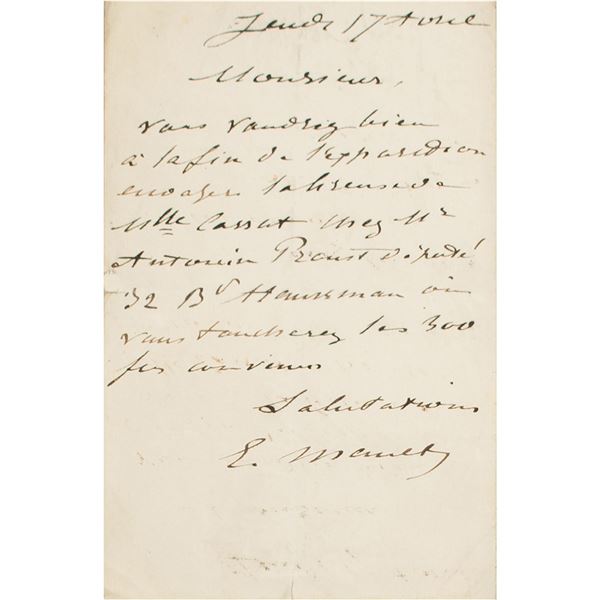 Jeudi 17 Avril
Monsieur,
vous voudrez bien
à la fin de l'exposition
envoyer la liseuse de
Mlle Cassat chez Mr
Antonin Proust député
32 Bd Hausman où
vous toucherez les 300
frs convenus
Salutations
E. Manet